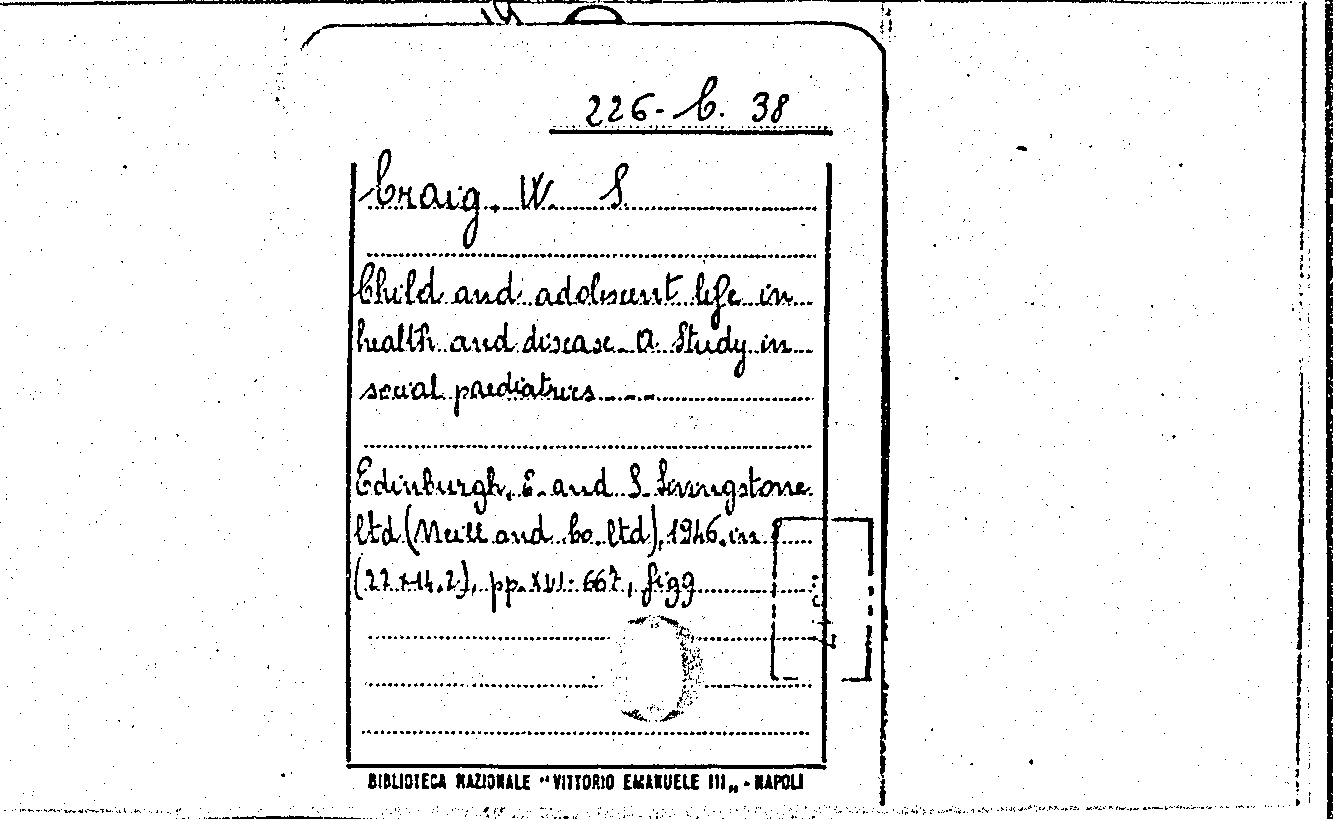 226-C. 38
Craig. W. S.
Child and adolescent life in
health and disease. A Study in
social paediatrics
Edinburgh, E. and S. Livingstone
ltd (Neill and Co. ltd), 1946. in
(22 x 14.2), pp. XVI-667, figg
BIBLIOTECA NAZIONALE "VITTORIO EMANUELE III„ - NAPOLI